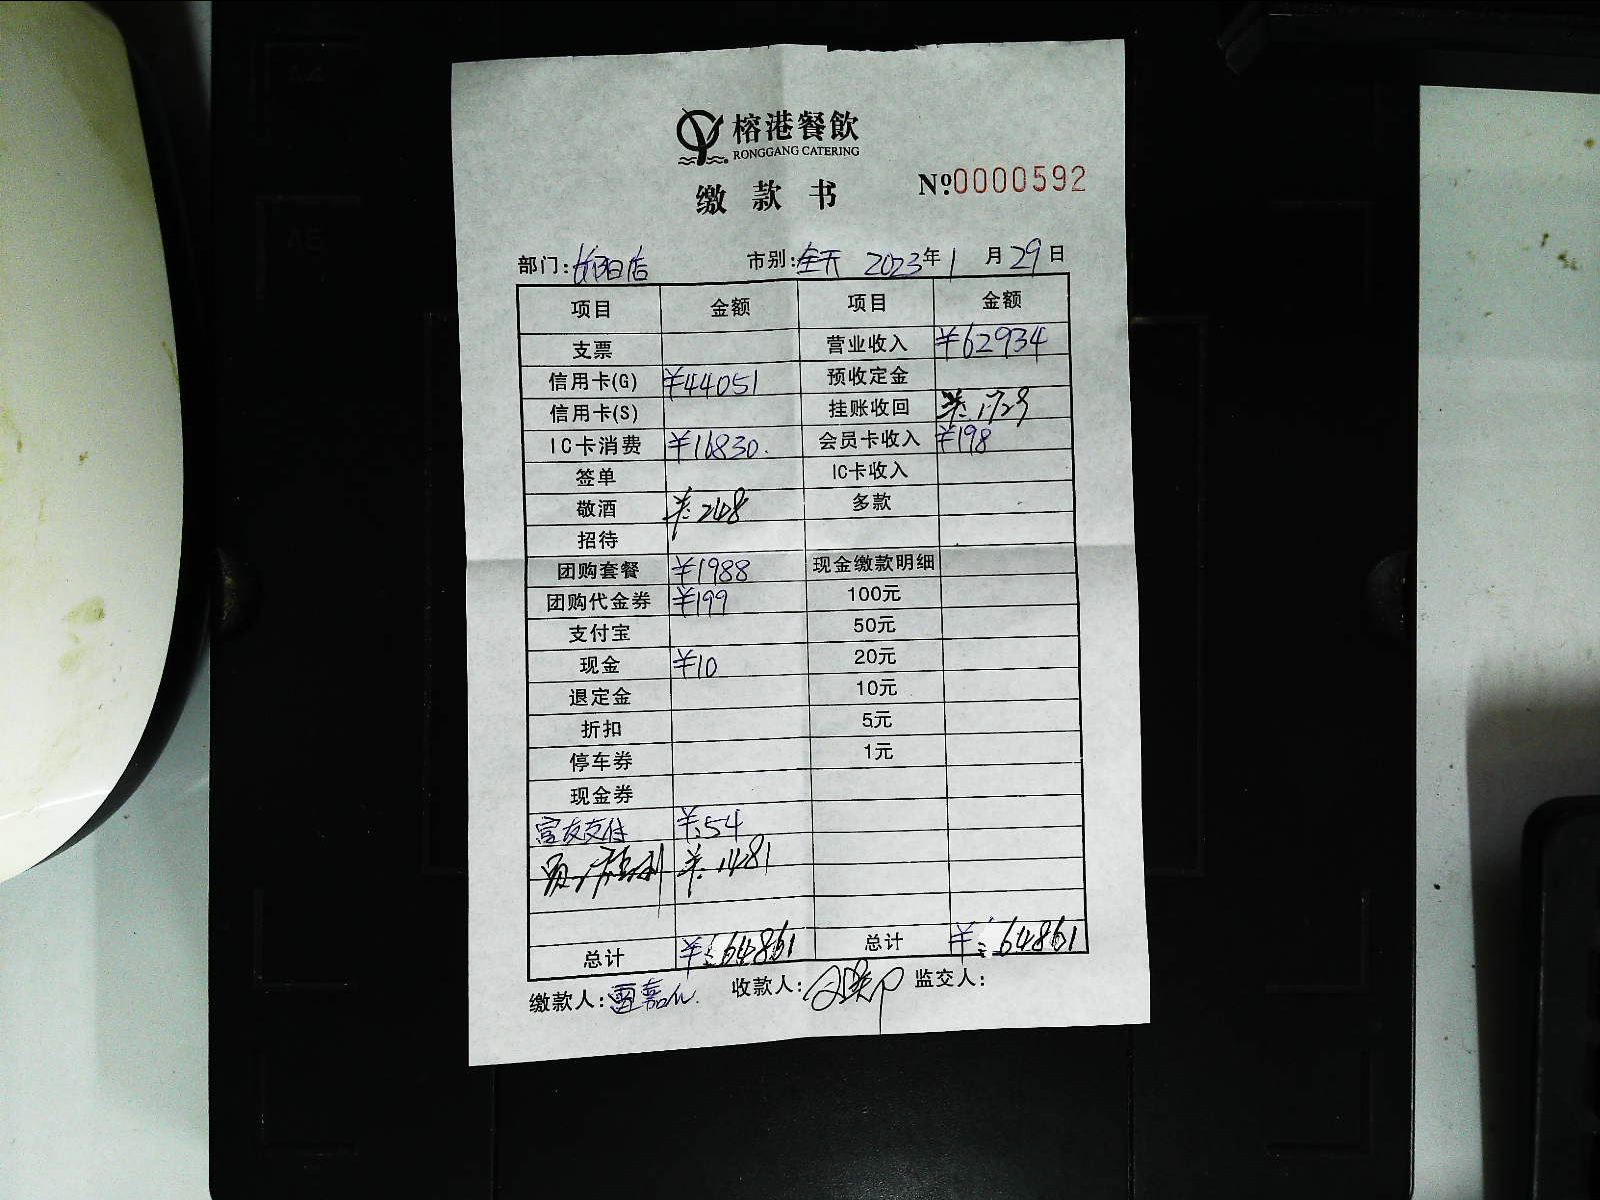 榕港餐飲
RONGGANG CATERING
缴款书 №0000592
部门:长阳店 市别:全天 2023年1月29日
项目 金额 项目 金额
支票 营业收入 ¥62934
信用卡(G) ¥44051 预收定金
信用卡(S) 挂账收回 ¥:1729
IC卡消费 ¥16830. 会员卡收入 ¥198
签单 IC卡收入
敬酒 ¥:248 多款
招待
团购套餐 ¥1988 现金缴款明细
团购代金券 ¥199 100元
支付宝 50元
现金 ¥10 20元
退定金 10元
折扣 5元
停车券 1元
现金券
富友支付 ¥:54
¥:1481
总计 ¥:64861 总计 ¥:64861
缴款人:雷嘉 收款人: 监交人: